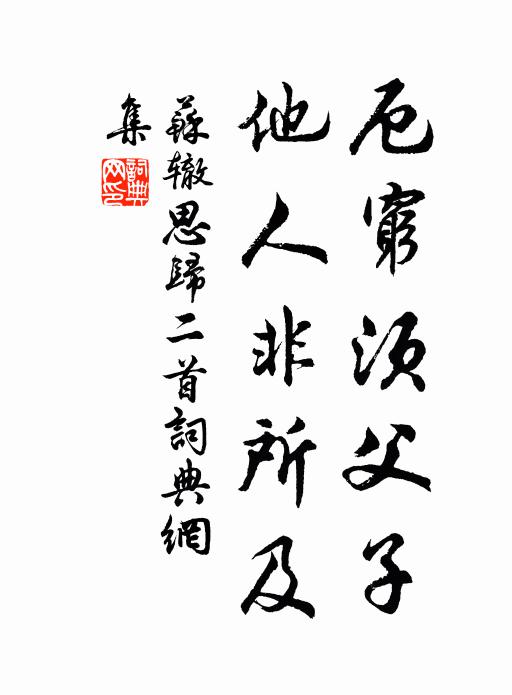 厄窮須父子
他人非所及
蘇轍思歸二首詞典網
集
詞典
网印